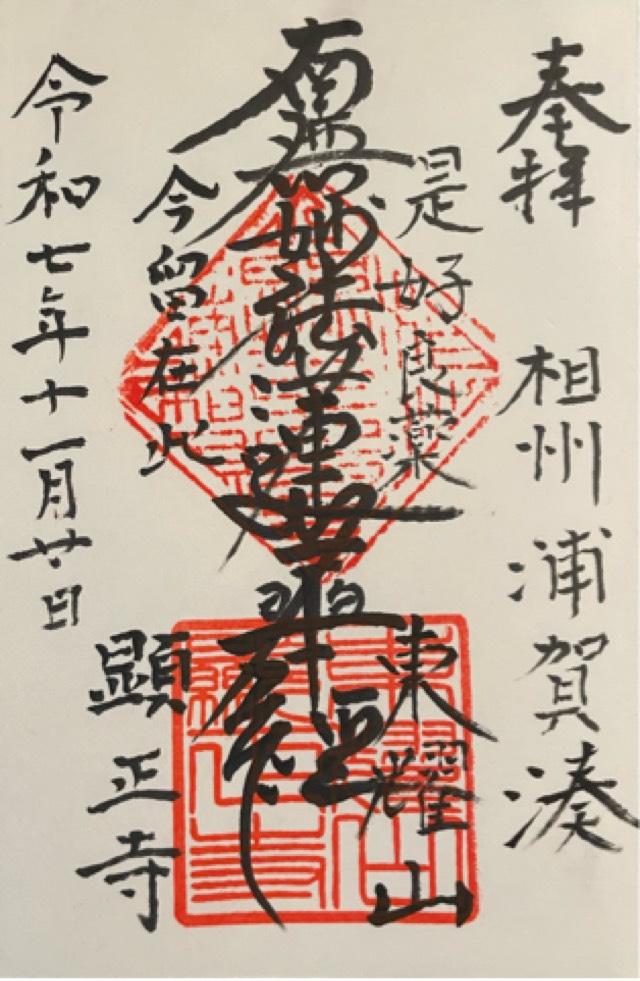 奉拝 相州浦賀湊
是好良薬
南無妙法蓮華経
今留在此
東耀山
顕正寺
令和七年十一月廿日